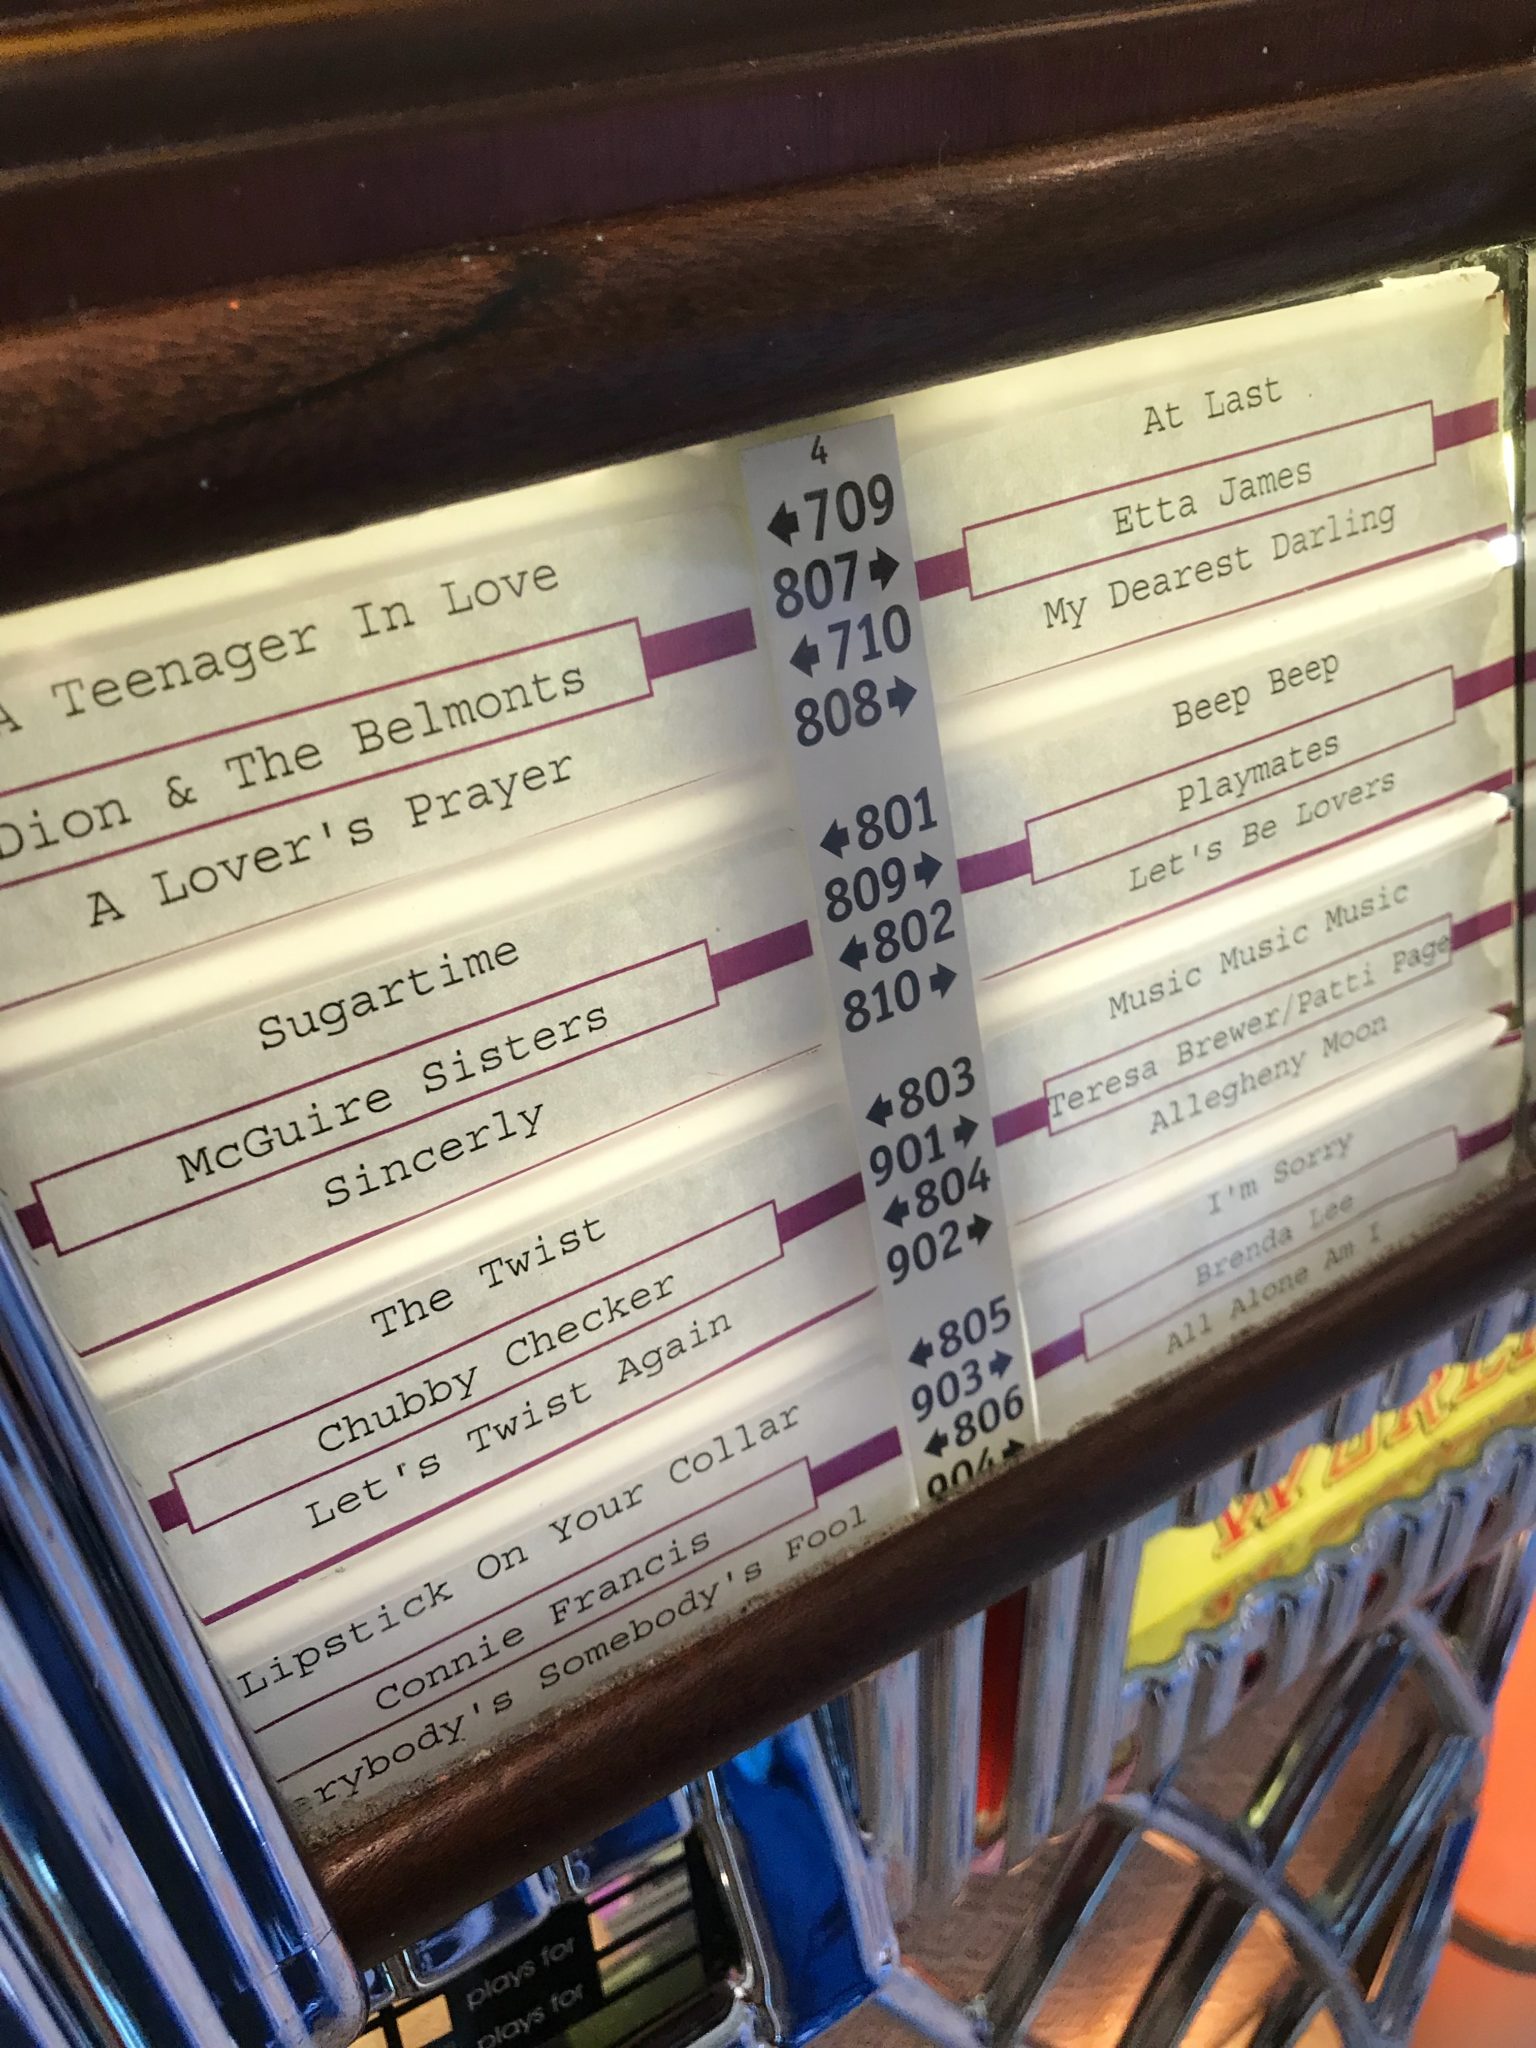 A Teenager In Love
Dion & The Belmonts
A Lover's Prayer
Sugartime
McGuire Sisters
Sincerely
The Twist
Chubby Checker
Let's Twist Again
Lipstick On Your Collar
Connie Francis
erybody's Somebody's Fool
4
709
807
710
808
801
809
802
810
803
901
804
902
805
903
806
904
At Last
Etta James
My Dearest Darling
Beep Beep
Playmates
Let's Be Lovers
Music Music Music
Teresa Brewer/Patti Page
Allegheny Moon
I'm Sorry
Brenda Lee
All Alone Am I
plays for
plays for